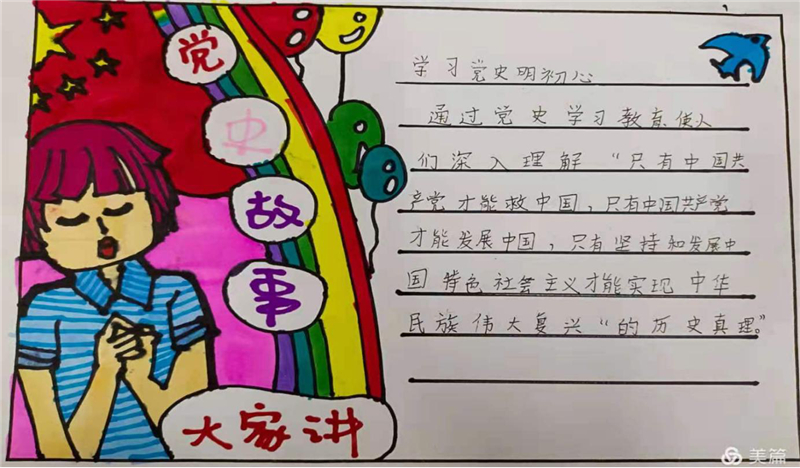 党
史
故
事
大家讲
学习党史明初心
通过党史学习教育,使人
们深入理解“只有中国共
产党才能救中国,只有中国共产党
才能发展中国,只有坚持和发展中
国特色社会主义才能实现中华
民族伟大复兴“的历史真理。”
美篇